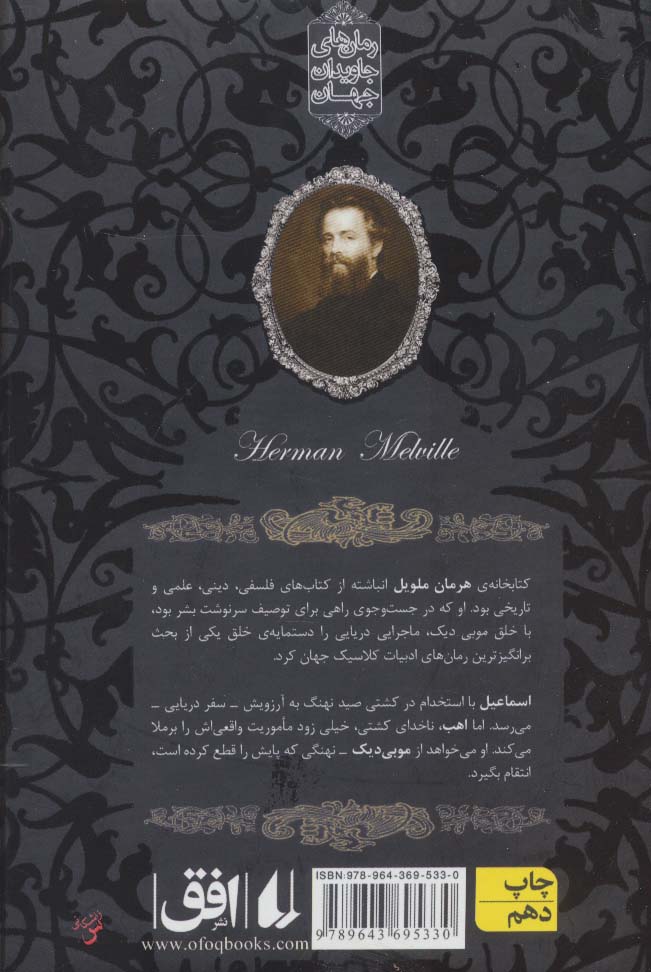 رمان‌های
جاویدان
جهان
Herman Melville
کتابخانه‌ی هرمان ملویل انباشته از کتاب‌های فلسفی، دینی، علمی و
تاریخی بود. او که در جست‌وجوی راهی برای توصیف سرنوشت بشر بود،
با خلق موبی دیک، ماجرایی دریایی را دستمایه‌ی خلق یکی از بحث
برانگیزترین رمان‌های ادبیات کلاسیک جهان کرد.
اسماعیل با استخدام در کشتی صید نهنگ به آرزویش ـ سفر دریایی ـ
می‌رسد. اما اهب، ناخدای کشتی، خیلی زود مأموریت واقعی‌اش را برملا
می‌کند. او می‌خواهد از موبی‌دیک ـ نهنگی که پایش را قطع کرده است،
انتقام بگیرد.
چاپ
دهم
ISBN: 978-964-369-533-0
9789643695330
نشر افق
www.ofoqbooks.com